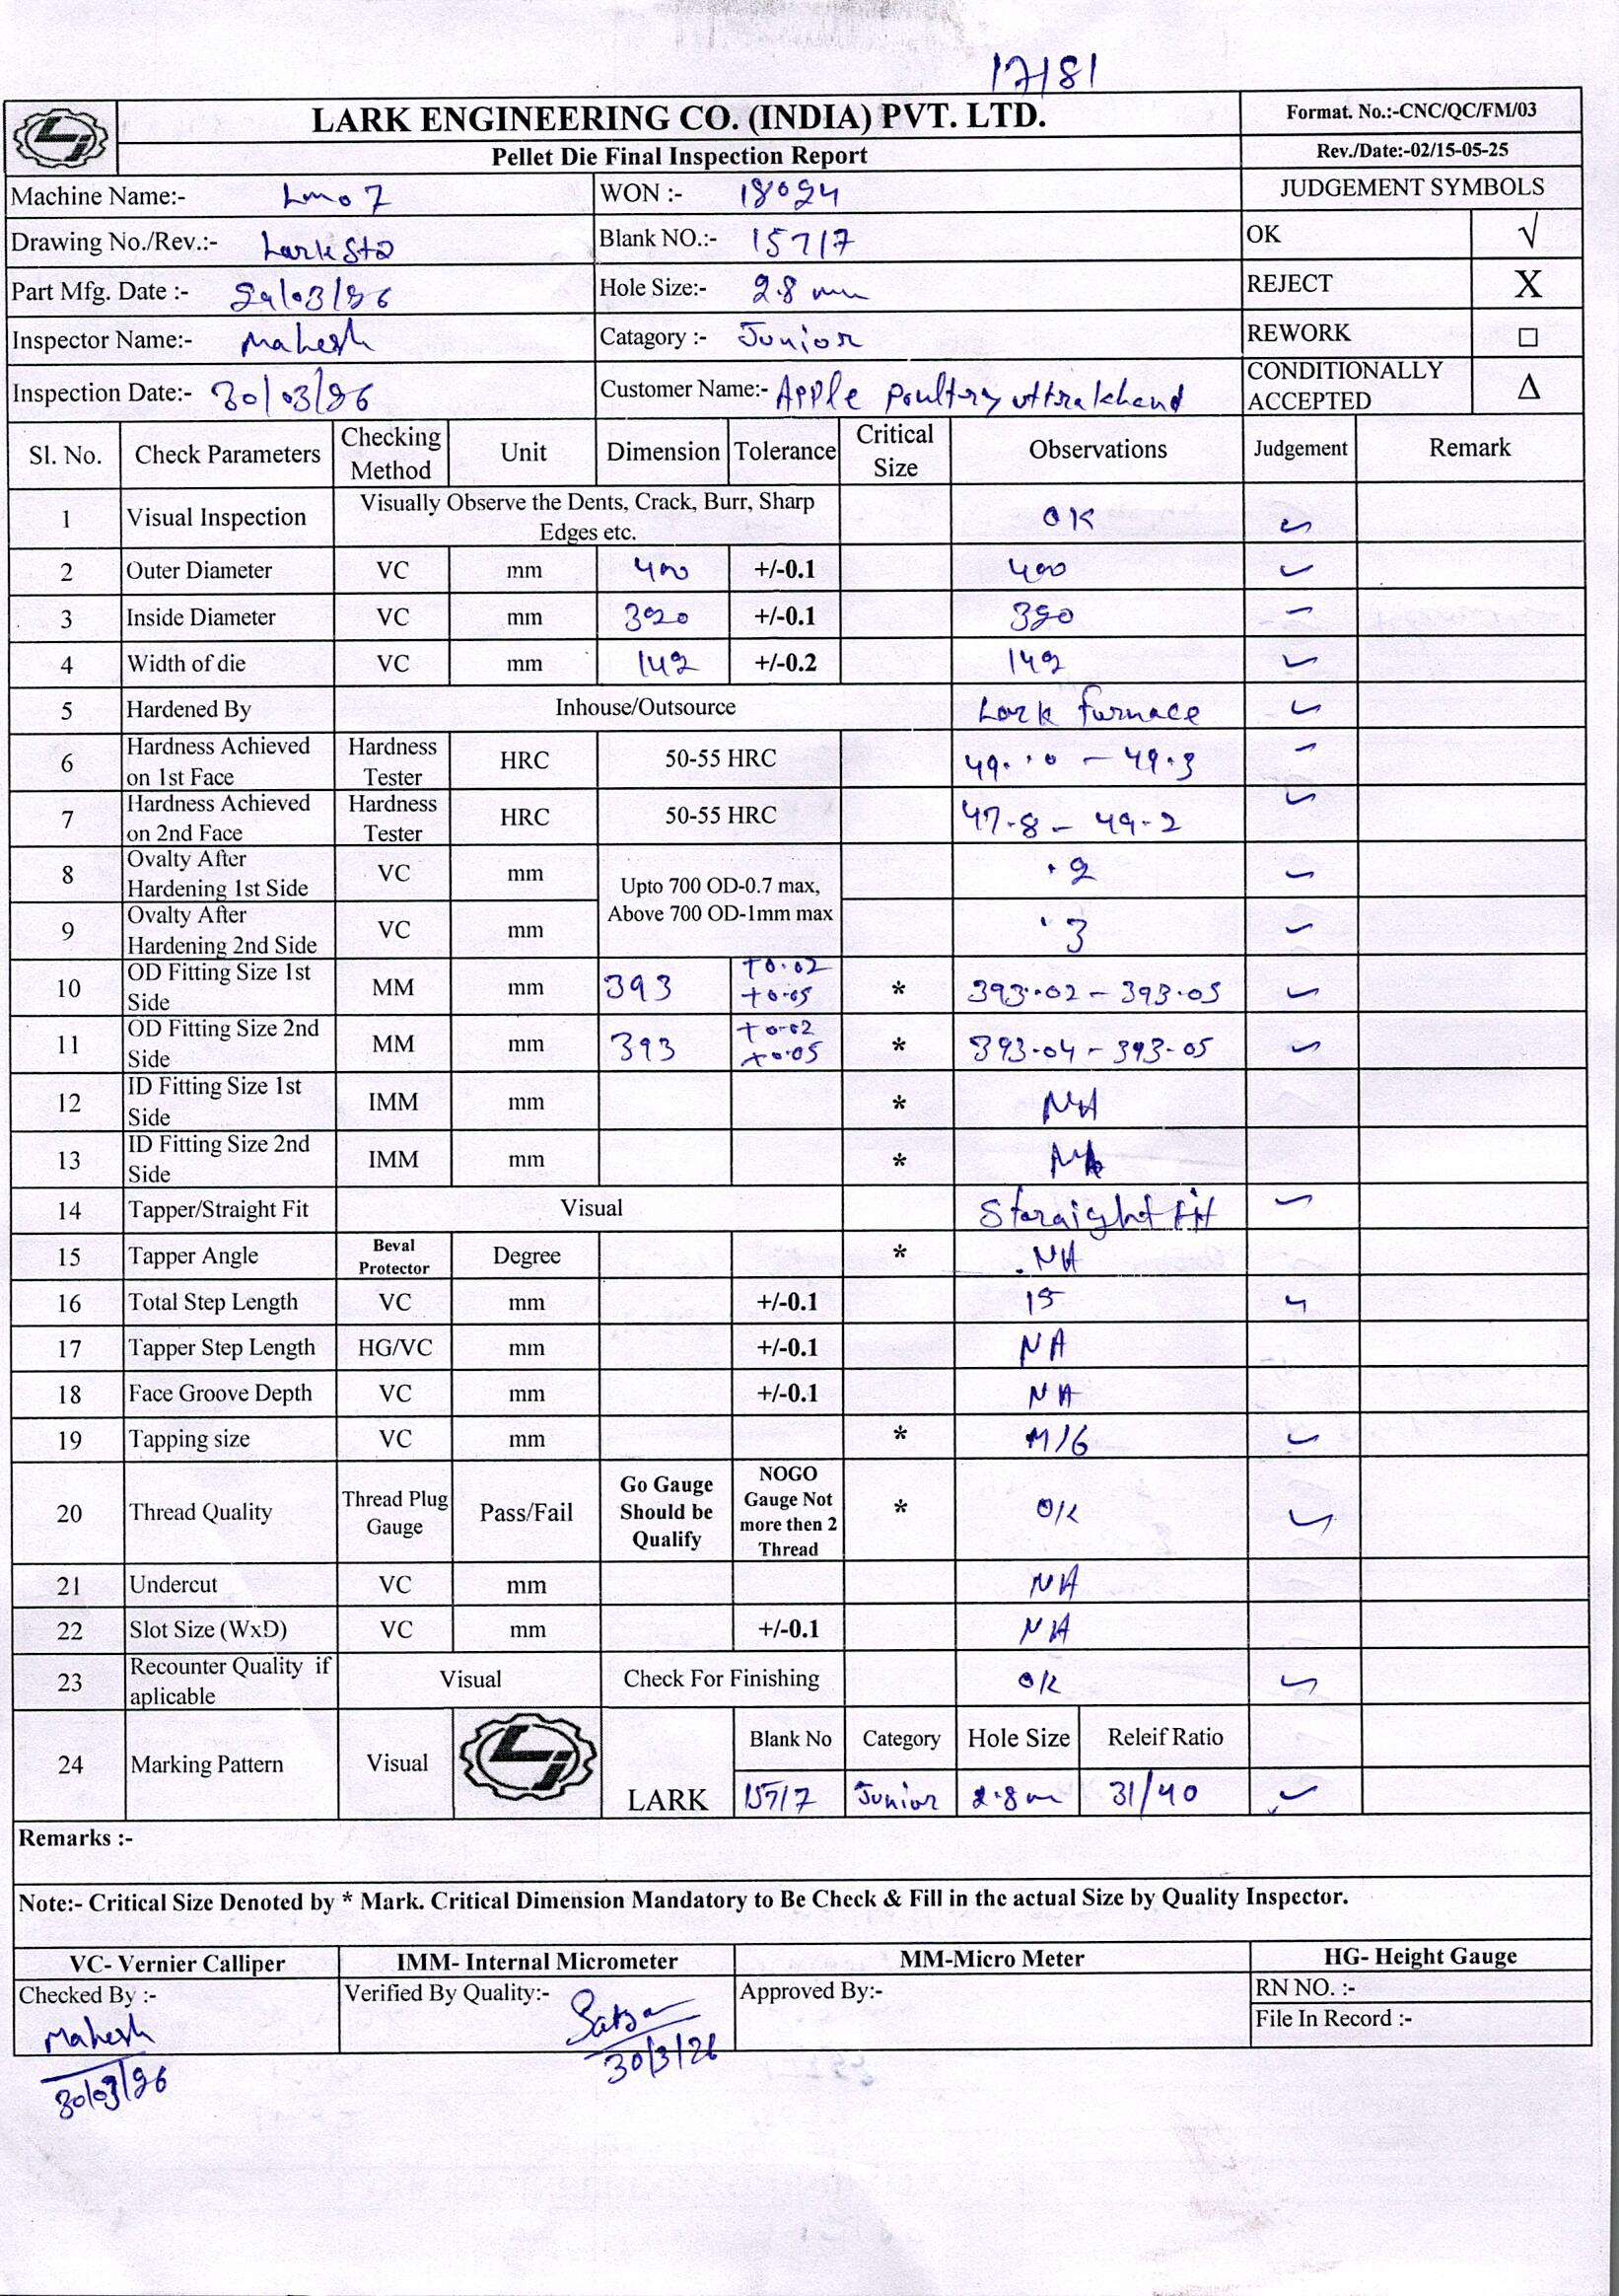 17/81
LARK ENGINEERING CO. (INDIA) PVT. LTD.
Format. No.:-CNC/QC/FM/03
Pellet Die Final Inspection Report
Rev./Date:-02/15-05-25
Machine Name:- Lmo7
WON :- 18024
JUDGEMENT SYMBOLS
Drawing No./Rev.:- Lark Std
Blank NO.:- 157/7
OK √
Part Mfg. Date :- 29/03/26
Hole Size:- 2.8 mm
REJECT X
Inspector Name:- Mahesh
Catagory :- Junior
REWORK □
Inspection Date:- 30/03/26
Customer Name:- Apple Poultry uttrakhand
CONDITIONALLY ACCEPTED Δ
Sl. No. Check Parameters Checking Method Unit Dimension Tolerance Critical Size Observations Judgement Remark
1 Visual Inspection Visually Observe the Dents, Crack, Burr, Sharp Edges etc. OK ✓
2 Outer Diameter VC mm 400 +/-0.1 400 ✓
3 Inside Diameter VC mm 320 +/-0.1 320 ✓
4 Width of die VC mm 142 +/-0.2 142 ✓
5 Hardened By Inhouse/Outsource Lark furnace ✓
6 Hardness Achieved on 1st Face Hardness Tester HRC 50-55 HRC – 49.3 ✓
7 Hardness Achieved on 2nd Face Hardness Tester HRC 50-55 HRC 47.8 – 49.2 ✓
8 Ovalty After Hardening 1st Side VC mm Upto 700 OD-0.7 max, Above 700 OD-1mm max .2 ✓
9 Ovalty After Hardening 2nd Side VC mm .3 ✓
10 OD Fitting Size 1st Side MM mm 393 +0.02 +0.05 * 393.02 – 393.05 ✓
11 OD Fitting Size 2nd Side MM mm 393 +0.02 +0.05 * 393.04 – 393.05 ✓
12 ID Fitting Size 1st Side IMM mm * NA
13 ID Fitting Size 2nd Side IMM mm * NA
14 Tapper/Straight Fit Visual Staraight fit ✓
15 Tapper Angle Beval Protector Degree * NA
16 Total Step Length VC mm +/-0.1 15 ✓
17 Tapper Step Length HG/VC mm +/-0.1 NA
18 Face Groove Depth VC mm +/-0.1 NA
19 Tapping size VC mm * M16 ✓
20 Thread Quality Thread Plug Gauge Pass/Fail Go Gauge Should be Qualify NOGO Gauge Not more then 2 Thread * OK ✓
21 Undercut VC mm NA
22 Slot Size (WxD) VC mm +/-0.1 NA
23 Recounter Quality if aplicable Visual Check For Finishing OK ✓
24 Marking Pattern Visual LARK Blank No Category Hole Size Releif Ratio
157/7 Junior 2.8m 31/40 ✓
Remarks :-
Note:- Critical Size Denoted by * Mark. Critical Dimension Mandatory to Be Check & Fill in the actual Size by Quality Inspector.
VC- Vernier Calliper IMM- Internal Micrometer MM-Micro Meter HG- Height Gauge
Checked By :- Verified By Quality:- Approved By:- RN NO. :-
File In Record :-
Mahesh
30/03/26
30/3/26